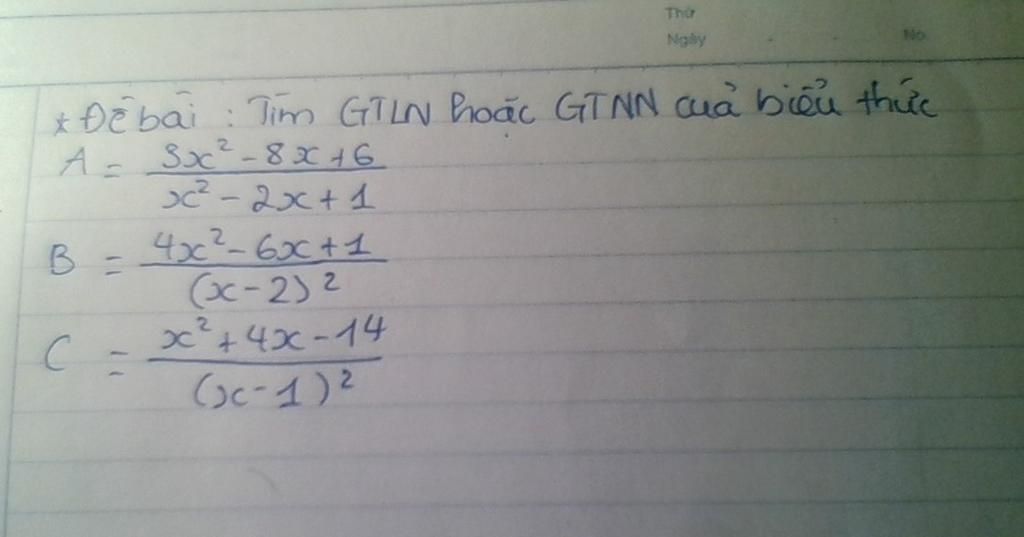 Thứ
Ngày . . No
* Đề bài : Tìm GTLN hoặc GTNN cuả biểu thức
A = \frac{3x² - 8x + 6}{x² - 2x + 1}
B = \frac{4x² - 6x + 1}{(x - 2)²}
C = \frac{x² + 4x - 14}{(x - 1)²}